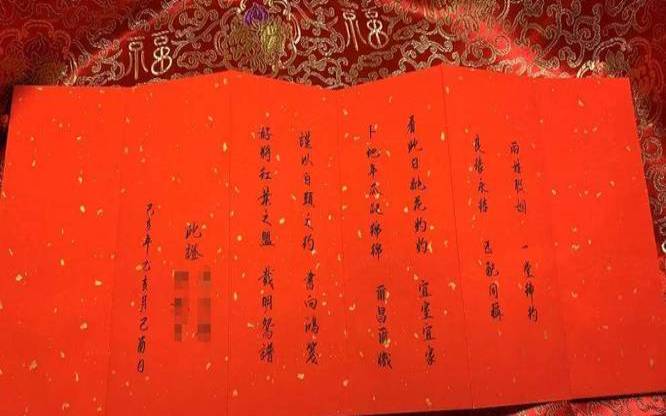 兩姓聯姻 一堂締約
良緣永結 匹配同稱
看此日桃花灼灼 宜室宜家
卜他年瓜瓞綿綿 爾昌爾熾
謹以白頭之約 書向鴻箋
好將紅葉之盟 載明鴛譜
此證
己亥年乙亥月己酉日